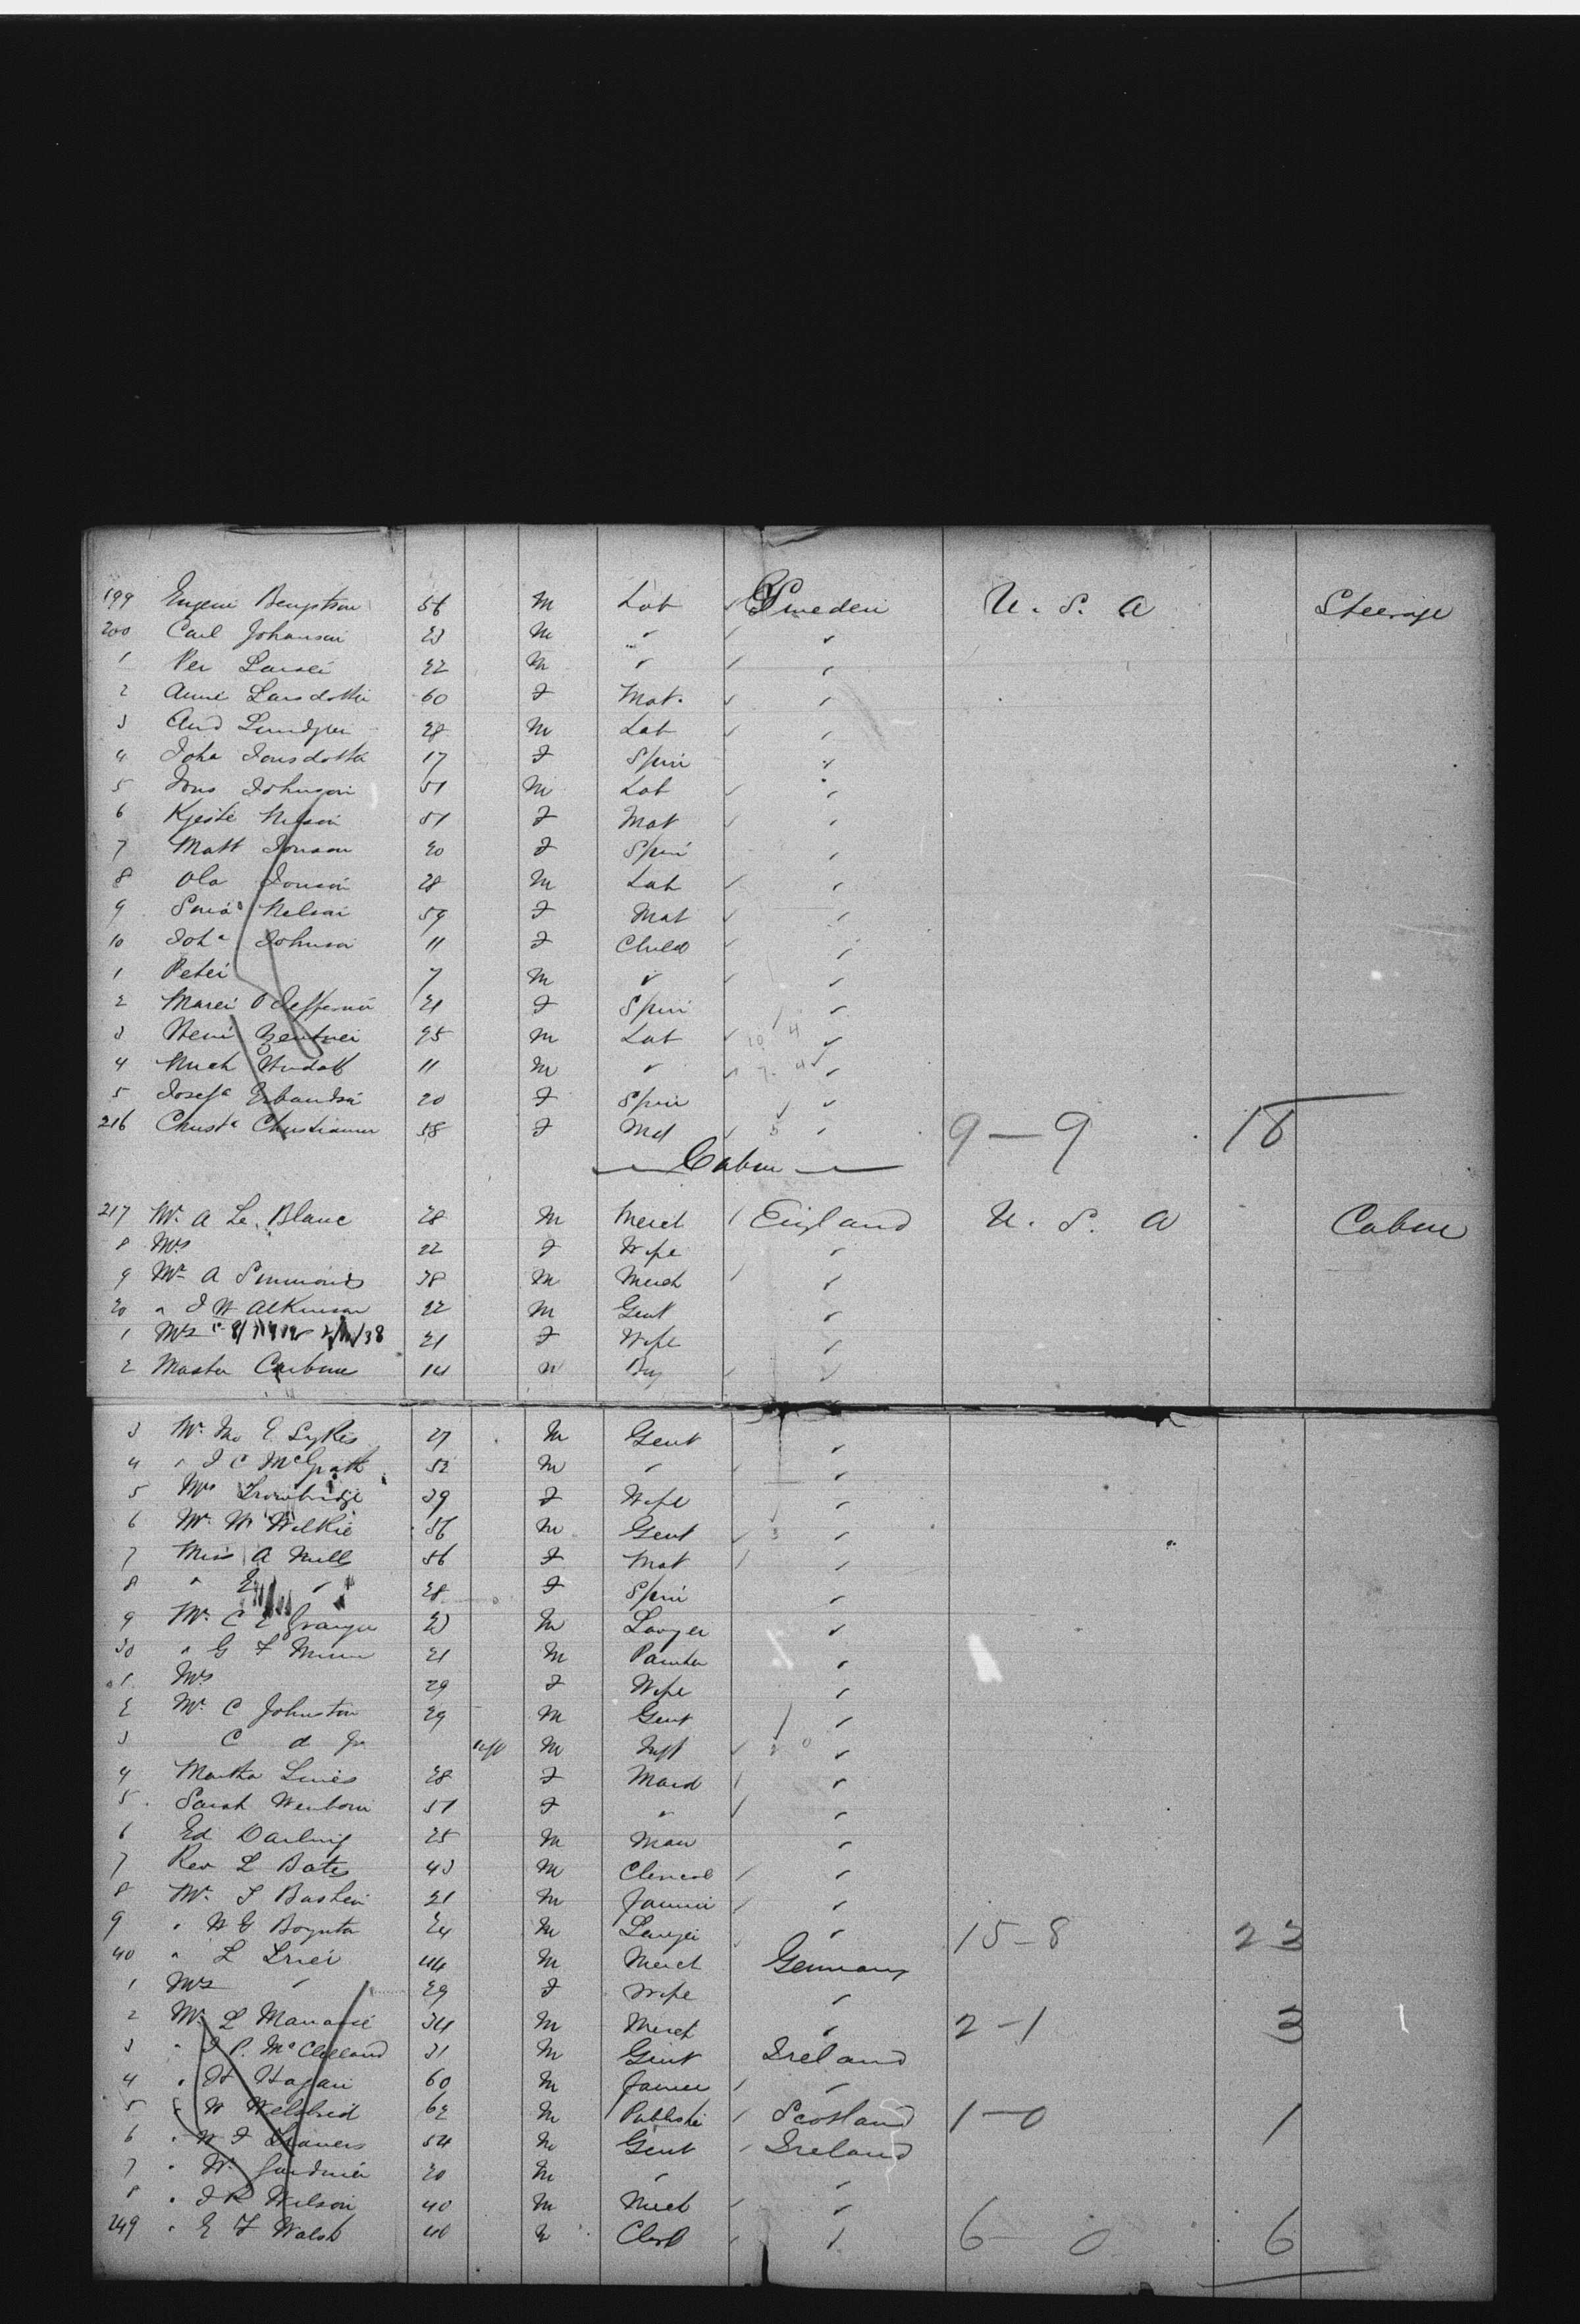 199 Eugeni Bengtson 56 M Lab Sweden U. S. A Steerage
200 Carl Johanson 23 M " "
1 Per Larsei 22 M " "
2 Anne Larsdotter 60 F Mat. "
3 And 28 M Lab "
4 Joha Jonsdotter 17 F Spin "
5 Jons Johnson 51 M Lab "
6 Kjeste Nelson 51 F Mat "
7 Matt Jonson 20 F Spin "
8 Ola Jonson 28 M Lab "
9 Nelson 59 F Mat "
10 Joha Johnson 11 F Child "
1 Peter 7 M " "
2 21 F Spin "
3 25 M Lab "
4 11 M " "
5 Josefa 20 F Spin "
216 Christa 58 F Md " 9 — 9 18
Cabin
217 Mr A Le Blanc 28 M Merch England U. S. A Cabin
8 Mrs 22 F Wife "
9 Mr A Simmonds 38 M Merch "
20 " J W Atkinson 22 M Gent "
1 Mrs " 21 F Wife "
2 Master 14 M Boy "
3 Mr E Sykes 27 M Gent "
4 " J C McGrath 52 M " "
5 Mrs Trowbridge 39 F Wife "
6 Mr W Wilkie 56 M Gent "
7 Miss A Mills 56 F Mat "
8 " E " 28 F Spin "
9 Mr C E Granger 23 M Lawyer "
30 " G F Munn 21 M Painter "
1 Mrs 29 F Wife "
2 Mr C Johnston 29 M Gent "
3 C d Jr inft M Inft "
4 Martha Lines 28 F Maid "
5 Sarah Wenborn 51 F " "
6 Ed Darling 25 M Man "
7 Rev L Bates 43 M Clerical "
8 Mr 21 M Farmer "
9 " W G Boynton 24 M Lawyer " 15 - 8 23
40 " L 44 M Merch Germany
1 Mrs " 29 F Wife "
2 Mr L 34 M Merch " 2 - 1 3
3 " J P. McClelland 31 M Gent Ireland
4 " H Hagan 60 M Farmer "
5 " W 62 M Publishr Scotland 1 - 0 1
6 " W J 54 M Gent Ireland
7 " W. Gardner 20 M " "
8 " J R Wilson 40 M Merch "
249 " E F Walsh 40 M Clerk " 6 0 6